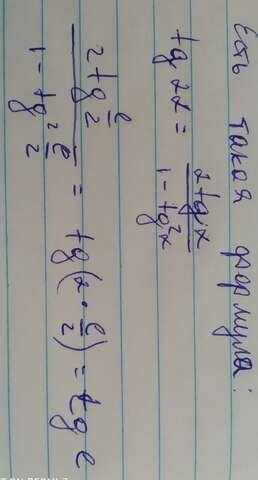 Есть такая формула:
tg 2α = 2tgα / 1 - tg²α
2tg ℓ/2 / 1 - tg² ℓ/2 = tg(2·ℓ/2) = tg ℓ